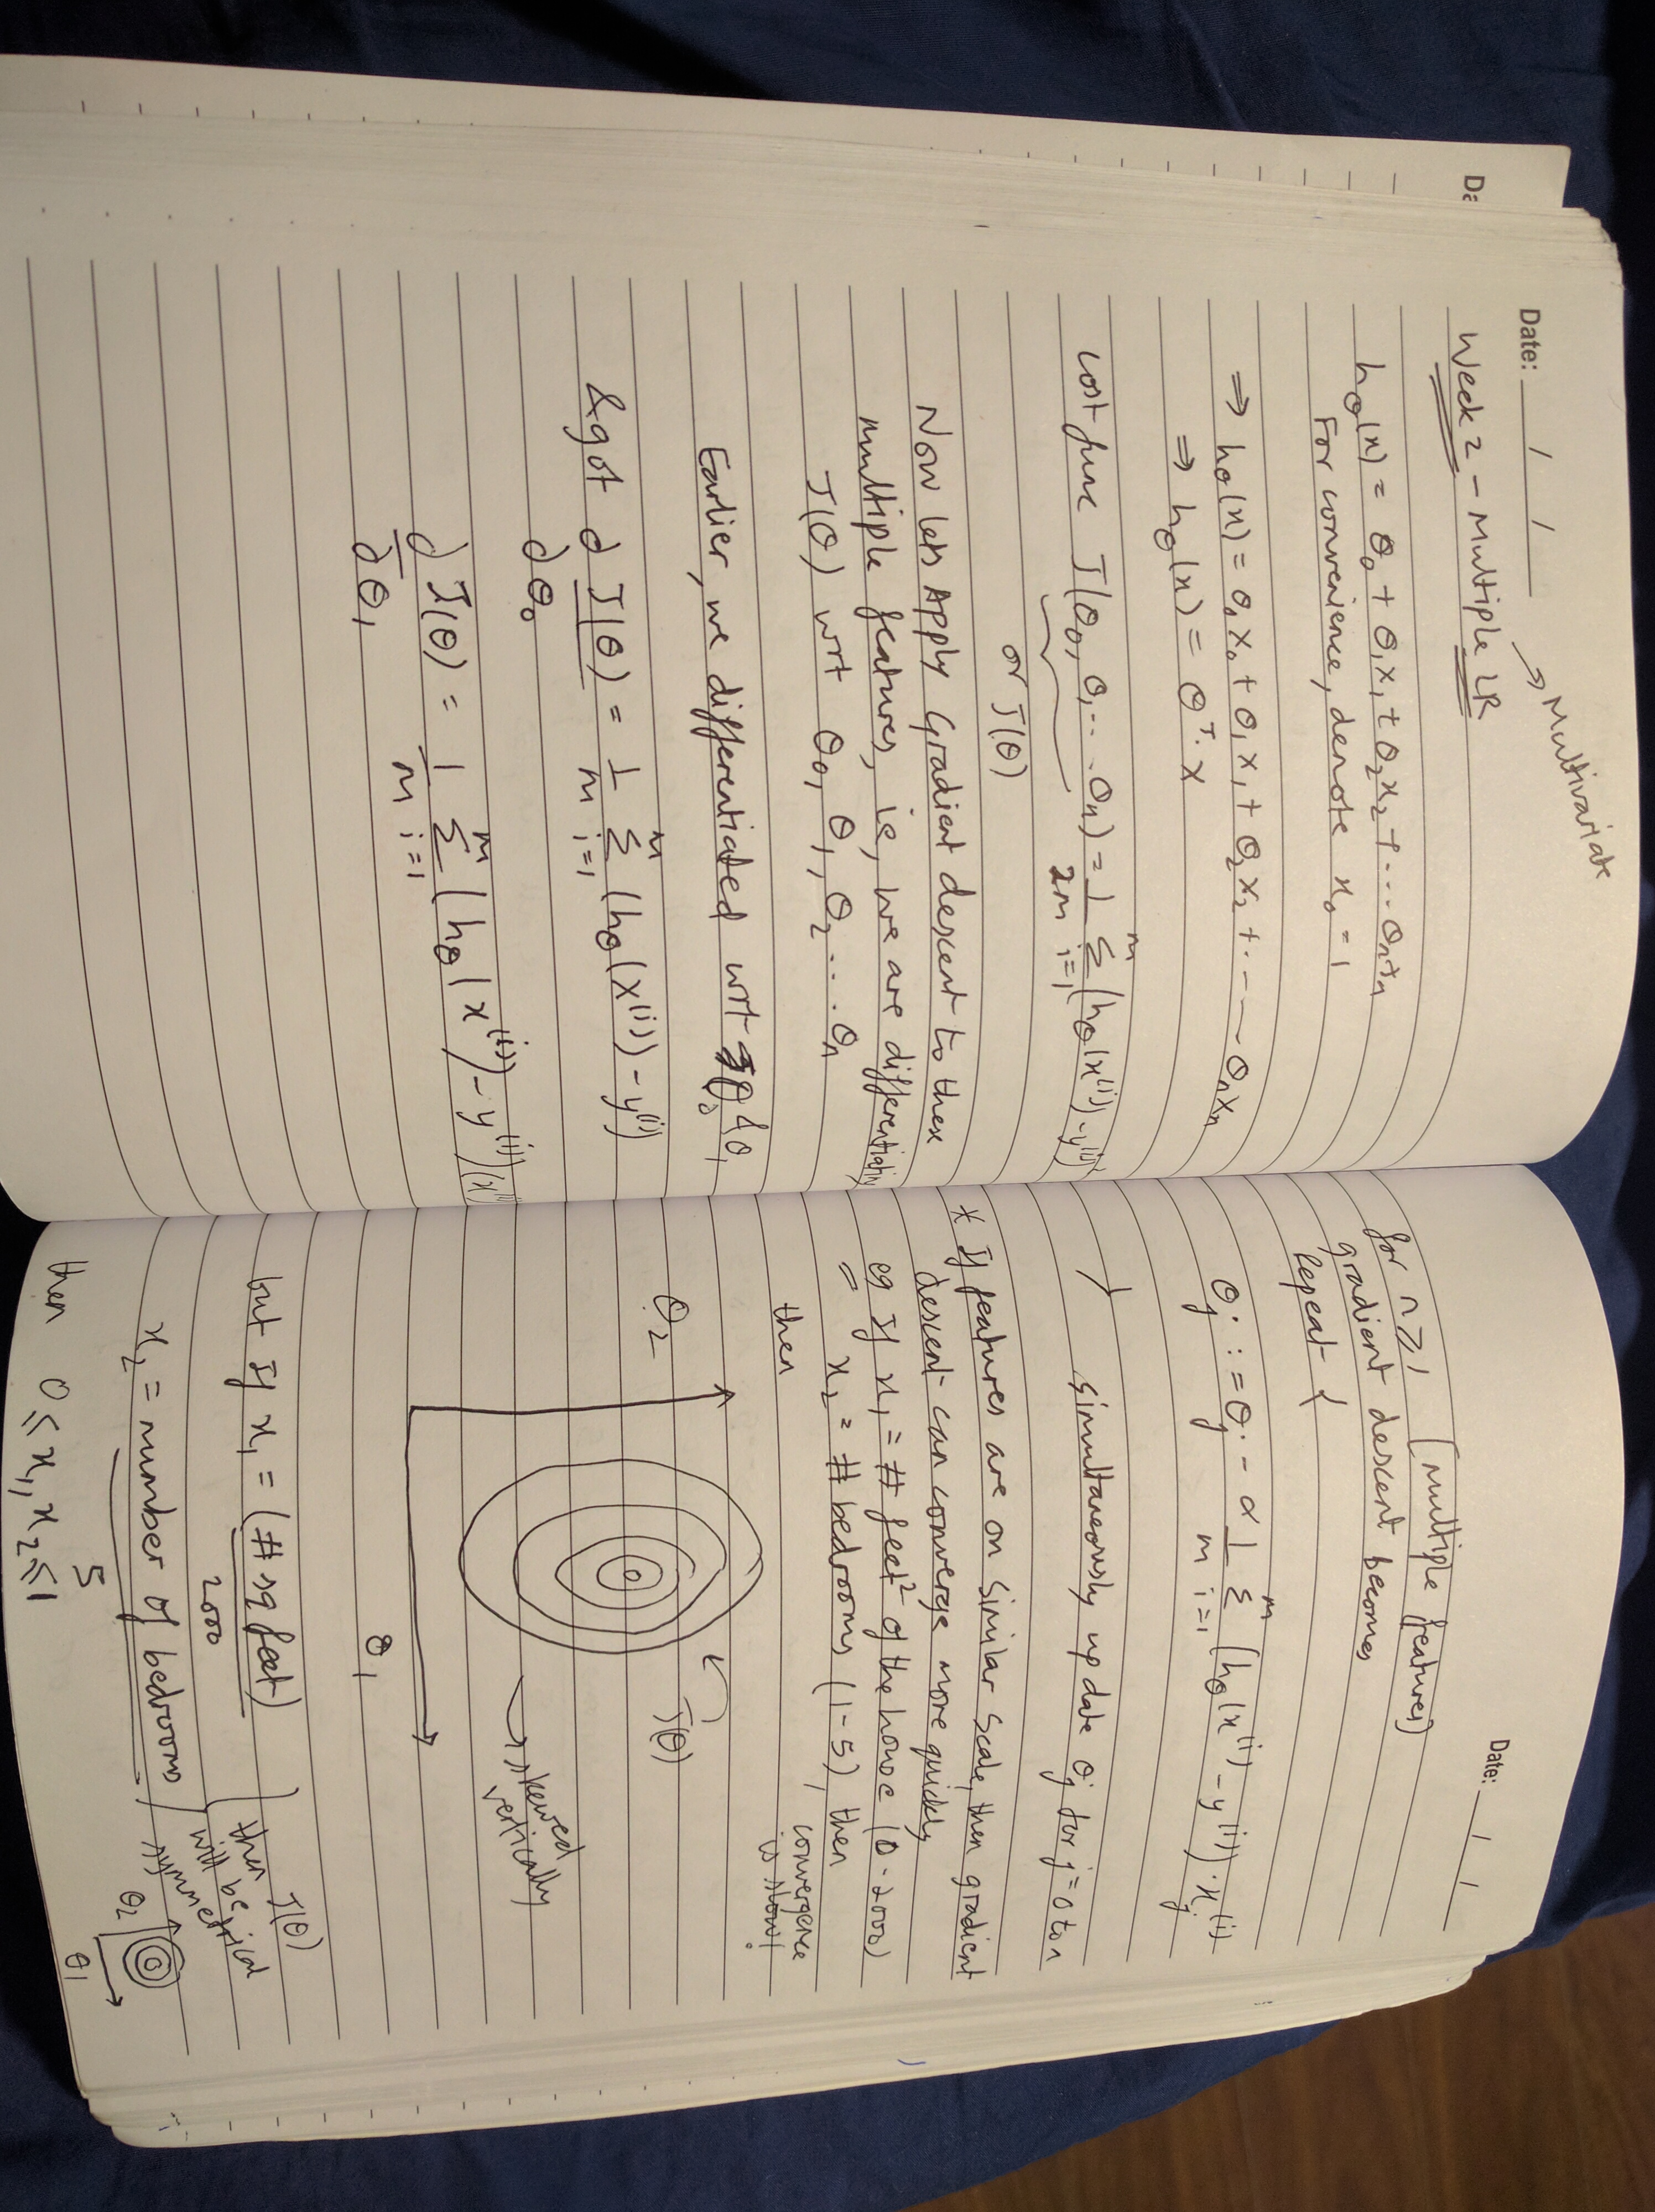 Da
Date: / /
Multivariate
Week 2 - Multiple LR
hθ(x) = θ₀ + θ₁x₁ + θ₂x₂ + .... θₙxₙ
For convenience, denote x₀ = 1
⇒ hθ(x) = θ₀x₀ + θ₁x₁ + θ₂x₂ + ..... θₙxₙ
⇒ hθ(x) = θᵀ. x
cost func J(θ₀, θ,... θₙ) = 1/2m Σᵢ₌₁ᵐ (hθ(x⁽ⁱ⁾) - y⁽ⁱ⁾)²
or J(θ)
Now lets Apply Gradient descent to these
multiple features, ie, we are differentiating
J(θ) wrt θ₀, θ₁, θ₂ .... θₙ
Earlier, we differentiated wrt θ₀ & θ₁
& got ∂ J(θ)/∂θ₀ = 1/m Σᵢ₌₁ᵐ (hθ(x⁽ⁱ⁾) - y⁽ⁱ⁾)
∂/∂θ₁ J(θ) = 1/m Σᵢ₌₁ᵐ (hθ(x⁽ⁱ⁾) - y⁽ⁱ⁾)(x⁽ⁱ⁾
Date: / /
for n ≥ 1 (multiple features)
gradient descent becomes
Repeat {
θⱼ := θⱼ - α 1/m Σᵢ₌₁ᵐ (hθ(x⁽ⁱ⁾ - y⁽ⁱ⁾) . xⱼ⁽ⁱ⁾
}
simultaneously update θⱼ for j = 0 to n
* If features are on similar scale, then gradient
descent can converge more quickly
eg If x₁ = # feet² of the house (0 - 2000)
x₂ = # bedrooms (1-5), then
then
convergence
is slow!
θ₂
J(θ)
skewed
vertically
θ₁
but If x₁ = (# sq feet)/2000
x₂ = number of bedrooms/5
then J(θ)
will be
symmetrical
θ₂
θ1
then 0 ≤ x₁, x₂ ≤ 1